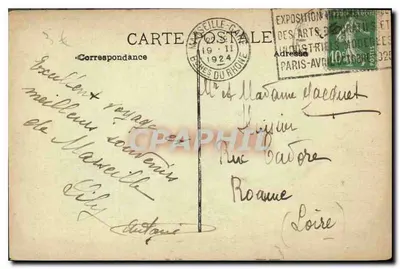 CARTE POSTALE
Correspondance
Adresse
MARSEILLE-GARE
19 - II
1924
BCHES DU RHONE
EXPOSITION INTERNATIONALE
DES ARTS DECORATIFS ET
INDUSTRIELS MODERNES
PARIS-AVRIL Octobre 1925
10
Excellent voyage
meilleurs souvenirs
de Marseille
Lily
Antoine
Mr et Madame Jacquet
Rue
Roanne
(Loire)
PRIX-CARTES.COM